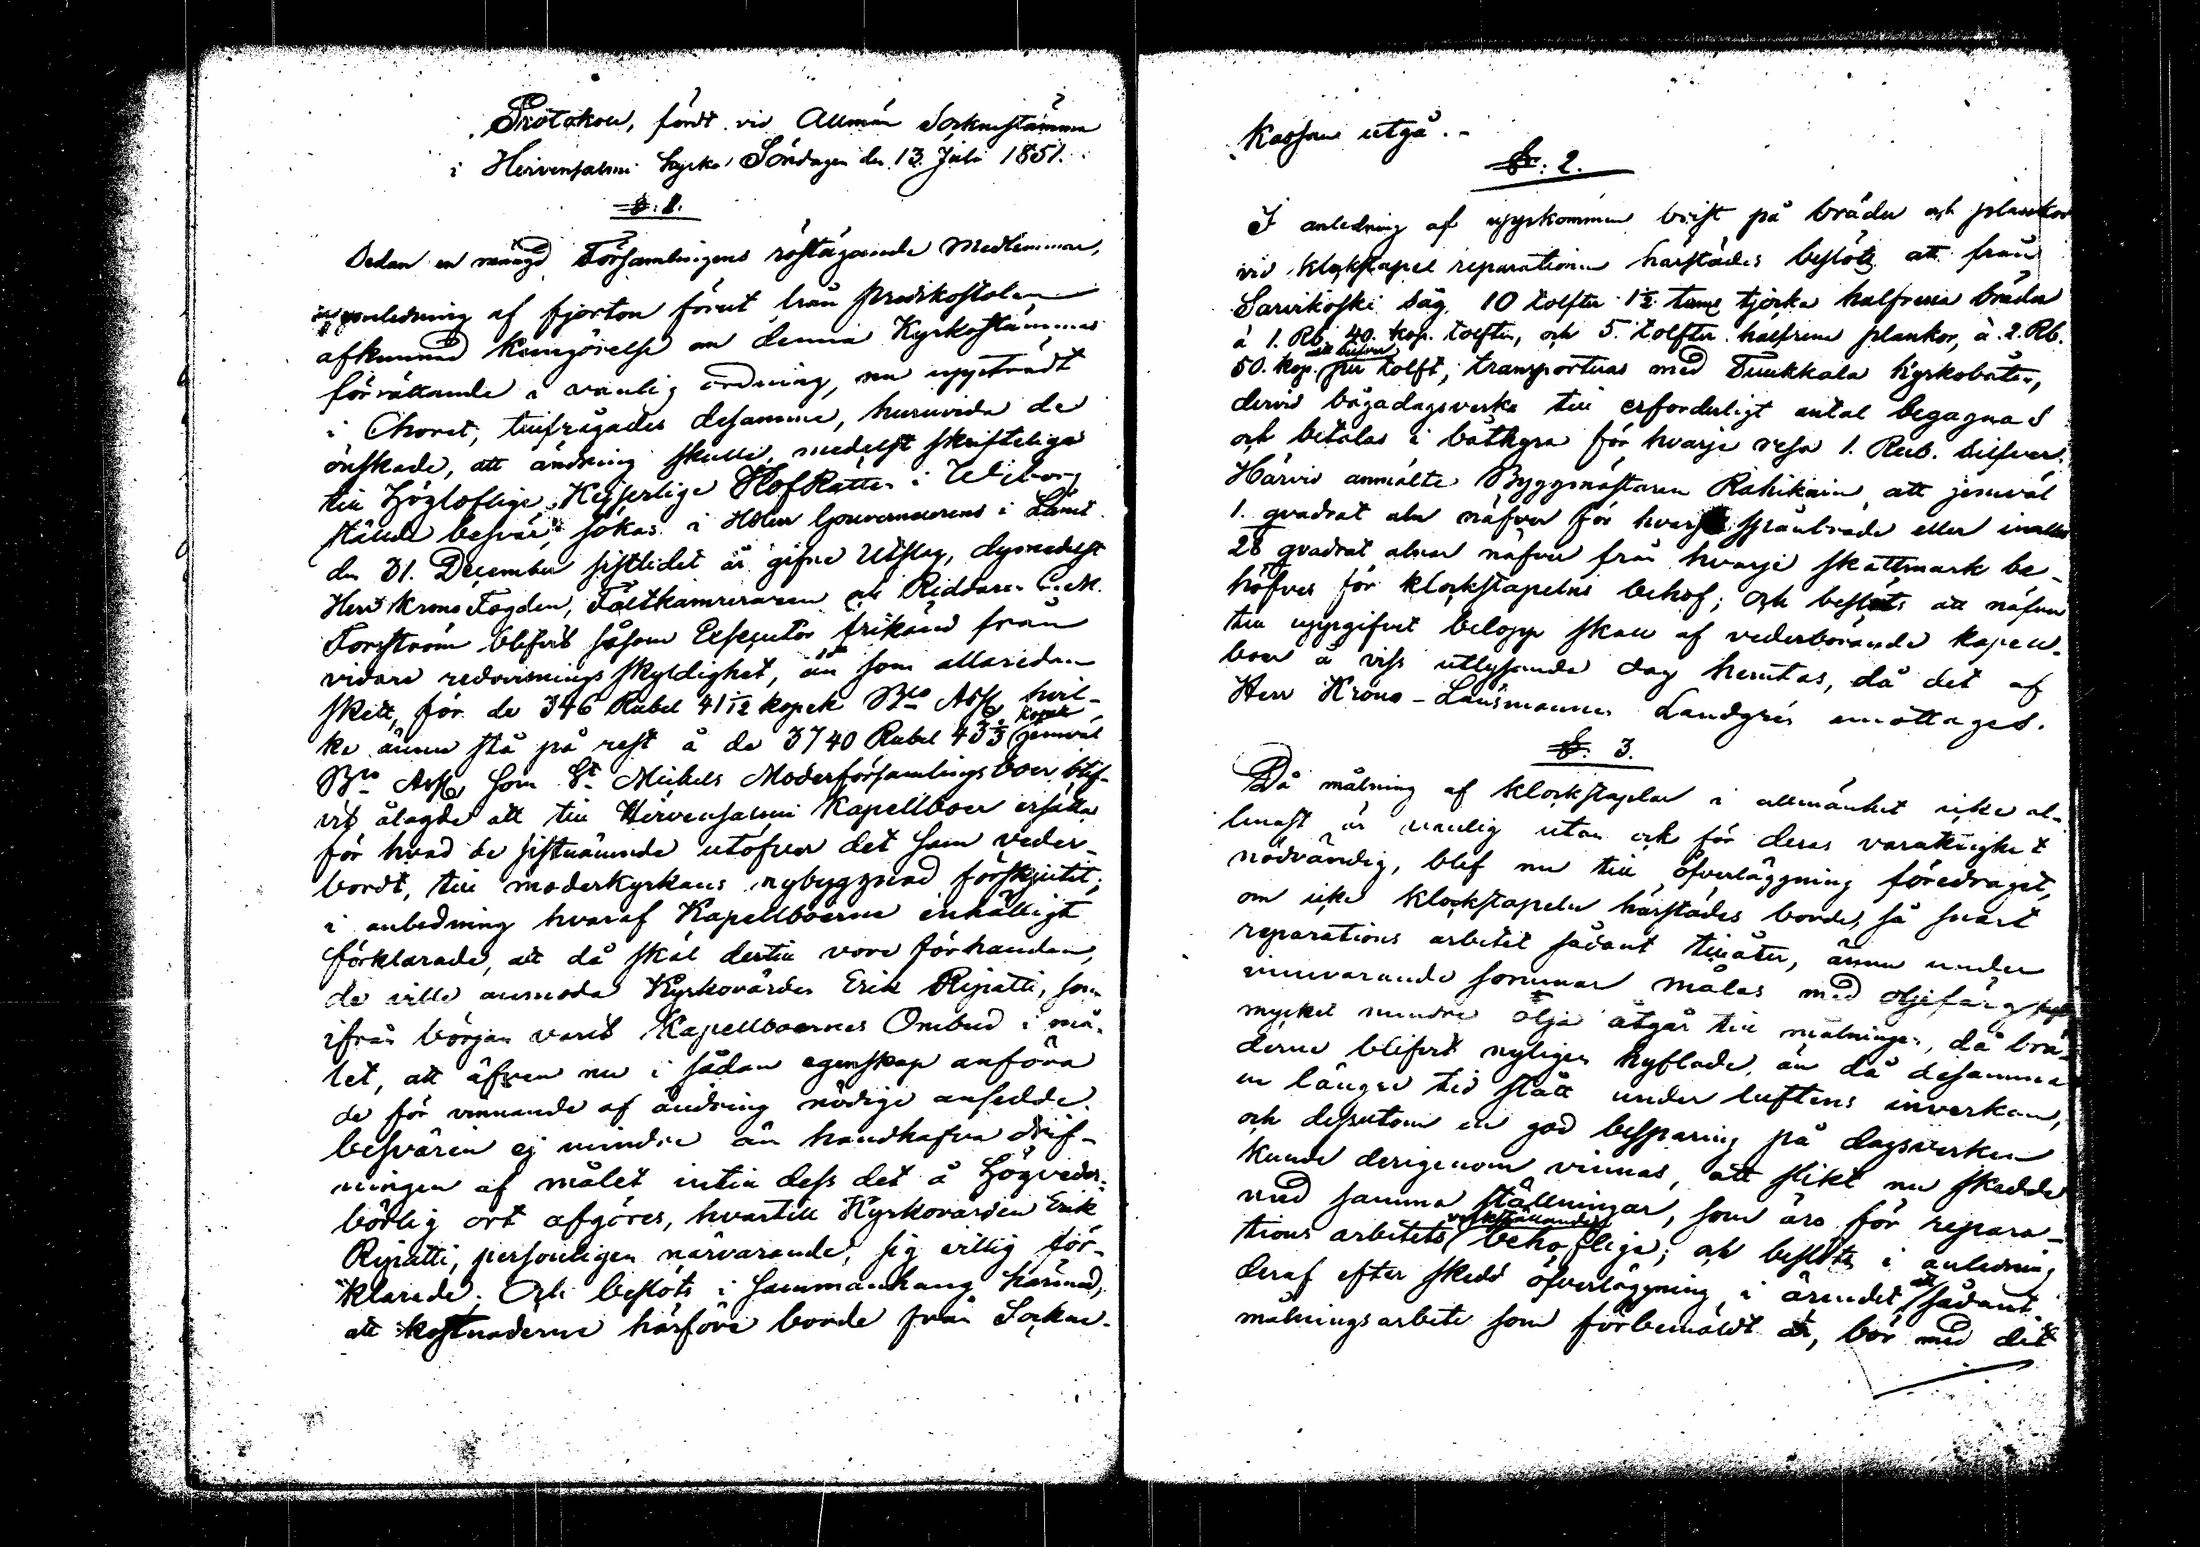 Protokoll, fördt vid Allmän Sockenstämma
i Hirvensalmi kyrka Söndagen den 13. Juli 1851.
§. 1.
Sedan en mängd Församlingens röstägande Medlemmar,
i anledning af fjorton förut från Predikostolen
afkunnad kungörelse om denna Kyrkostämmas
förrättande i vanlig ordning, nu uppträdt
i Choret, tillfrågades desamma, huruvida de
önskade, att ändring skulle, medelst skrifteliga
till Höglofliga Kejserliga HofRätten i Wiborg
stälde besvär, sökas i Herr Gouverneurens i Länet
den 31. December sistlidet år gifne Utslag, dymedelst
Herr KronoFogden, Fältkamreraren och Riddaren C. M.
Forsström blifvit såsom Exsecutor frikänd från
vidare redovisnings skyldighet, än som allaredan
skett, för de 346 Rubel 41 1/12 kopek Bco Ass. hvil-
ke ännu stå på rest å de 3740 Rubel 43 1/3 kopek jemväl
Bco Ass. som St Michels Moderförsamlingsboer blif-
vit ålagde att till Hirvensalmi Kapellboer ersätta
för hvad de sistnämnde utöfver det som veder-
bordt, till moderkyrkans nybyggnad förskjutit;
i anledning hvaraf Kapellboerne enhälligt
förklarade, att då skäl dertill vore förhanden,
de ville anmoda Kyrkovärden Erik Ripatti, som
ifrån början varit Kapellboernes Ombud i må-
let, att äfven nu i sådan egenskap anföra
de för vinnande af ändring nödige ansedde
besvären ej mindre än handhafva drif-
ningen af målet intill dess det å Högveder-
börlig ort afgöres, hvartill Kyrkovärden Erik
Ripatti, personligen närvarande, sig villig för-
klarade. Och beslöts i sammanhang härmed,
att kostnaderne härföre borde från Socken-
kassan utgå. -
§. 2.
I anledning af uppkommen brist på bräder och plankor
vid klockstapel reparationen härstädes beslöts att från
Sarvikoski såg 10 tolfter 1 1/2 tums tjocka halfrena bräder
à 1. Rb 40. kop. tolften, och 5. tolfter halfrena plankor, à 2. Rb.
50. kop. allt silfver per tolft, transporteras med Tuukkala kyrkobåten,
dervid bågadagsverke till erforderligt antal begagnas
och betalas i båthyra för hvarje resa 1. Rub. silfver.
Härvid anmälte Byggmästaren Rahikain att jemväl
1. qvadrat aln näfver för hvarje spånbräde eller inalles
28 qvadrat alnar näfver från hvarje skattmark be-
höfves för klockstapelns behof; och beslöts att näfver
till uppgifvet belopp skall af vederbörande kapell-
boer å viss utlysande dag hemtas, då det af
Herr Krono-Länsmannen Landgrén emottages.
§. 3.
Då målning af klockstaplar i allmänhet icke al-
lenast är vanlig utan ock för deras varaktighet
nödvändig, blef nu till öfverläggning föredraget,
om icke klockstapeln härstädes borde, så snart
reparations arbetet sådant tillåter, ännu under
innevarande sommar målas med oljefärg,
mycket mindre olja åtgår till målningen, då brä-
derne blifvit nyligen hyflade, än då desamma
en längre tid stått under luftens inverkan,
och dessutom en god besparing på dagsverken
kunde derigenom vinnas, att slikt nu skedde
med samma ställningar, som äro för repara-
tions arbetets verkställande behöflige; och beslöts i anledning
deraf efter skedd öfverläggning i ärendet att sådant
målningsarbete som förbemäldt är, bör med det